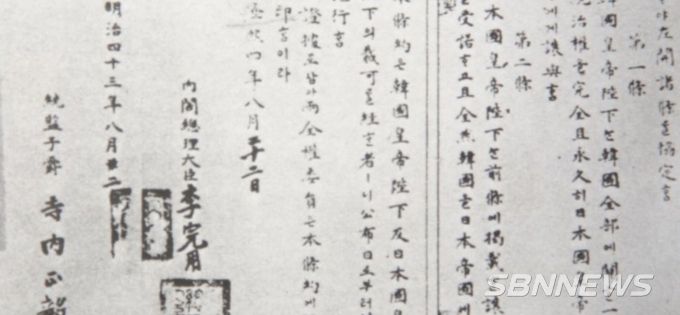 야左開諸條을協定홈
第一條
韓國皇帝陛下는韓國全部에關한一
統治權을完全且永久히日本國皇帝
에게讓與홈
第二條
日本國皇帝陛下는前條에揭載한讓
受諾하고且全然韓國을日本帝國에
本條約은韓國皇帝陛下及日本國皇
下의裁可를經한者ㅣ니公布日로부터
施行홈
證據로삼아兩全權委員은本條約에
印홈이라
隆熙四年八月二十二日
內閣總理大臣 李完用
明治四十三年八月廿二
統監子爵 寺內正毅
SBNNEWS